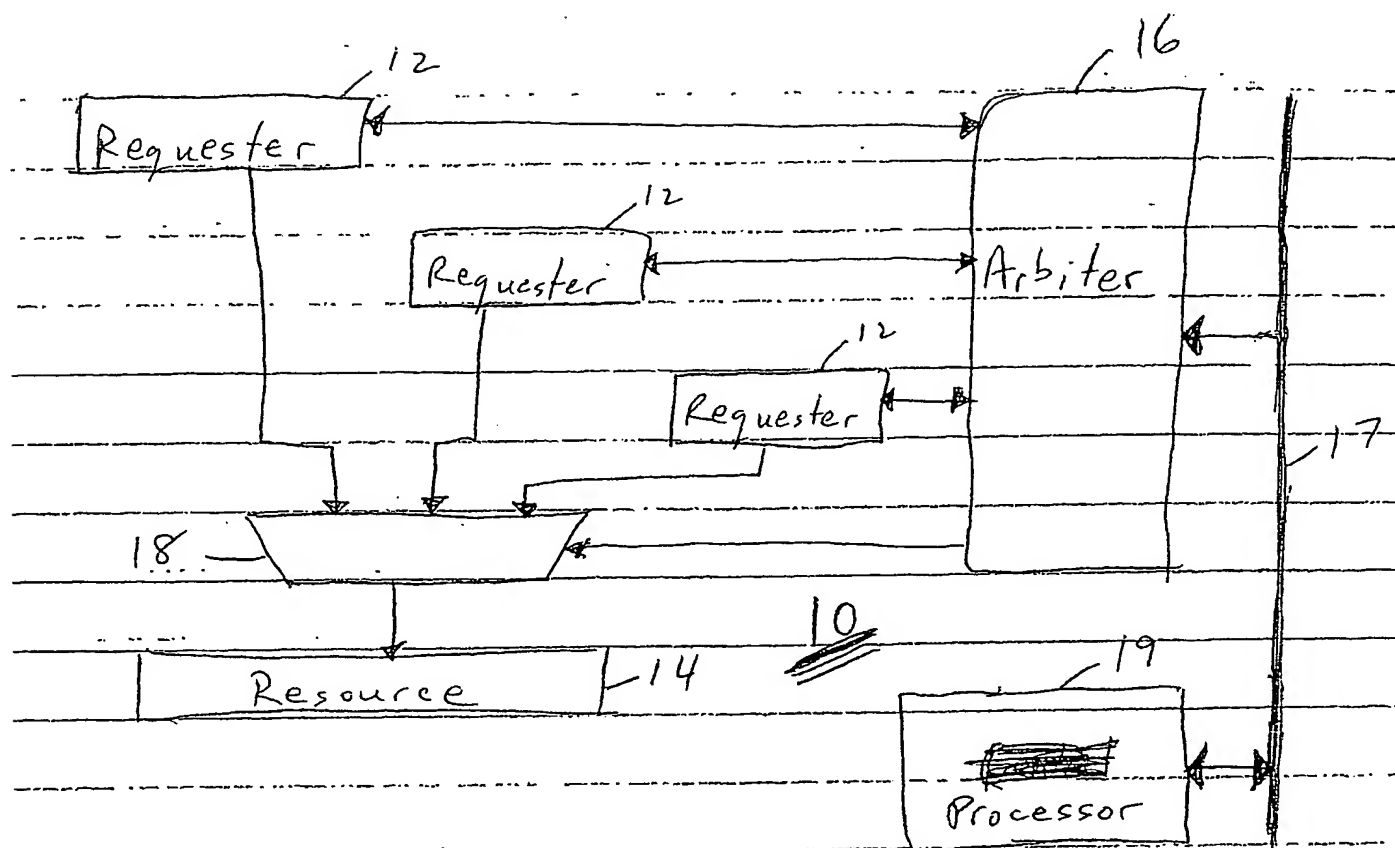 12
16
Requester
12
Requester
Arbiter
12
Requester
17
18
10
19
Resource
14
Processor